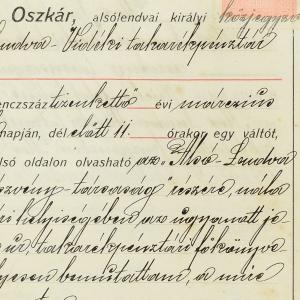 Oszkár, alsólendvai királyi közjegyző
Lendva-Vidéki takarékpénztár
enczszáz tizenkettő évi márczius
napján, dél előtt 11 órakor egy váltót,
lső oldalon olvasható az "Alsó-Lendva
észvény-társaság" részére, nála
helyiségében az ugyanott je
úr, takarékpénztári főkönyve
lyesen bemutattam, a mire